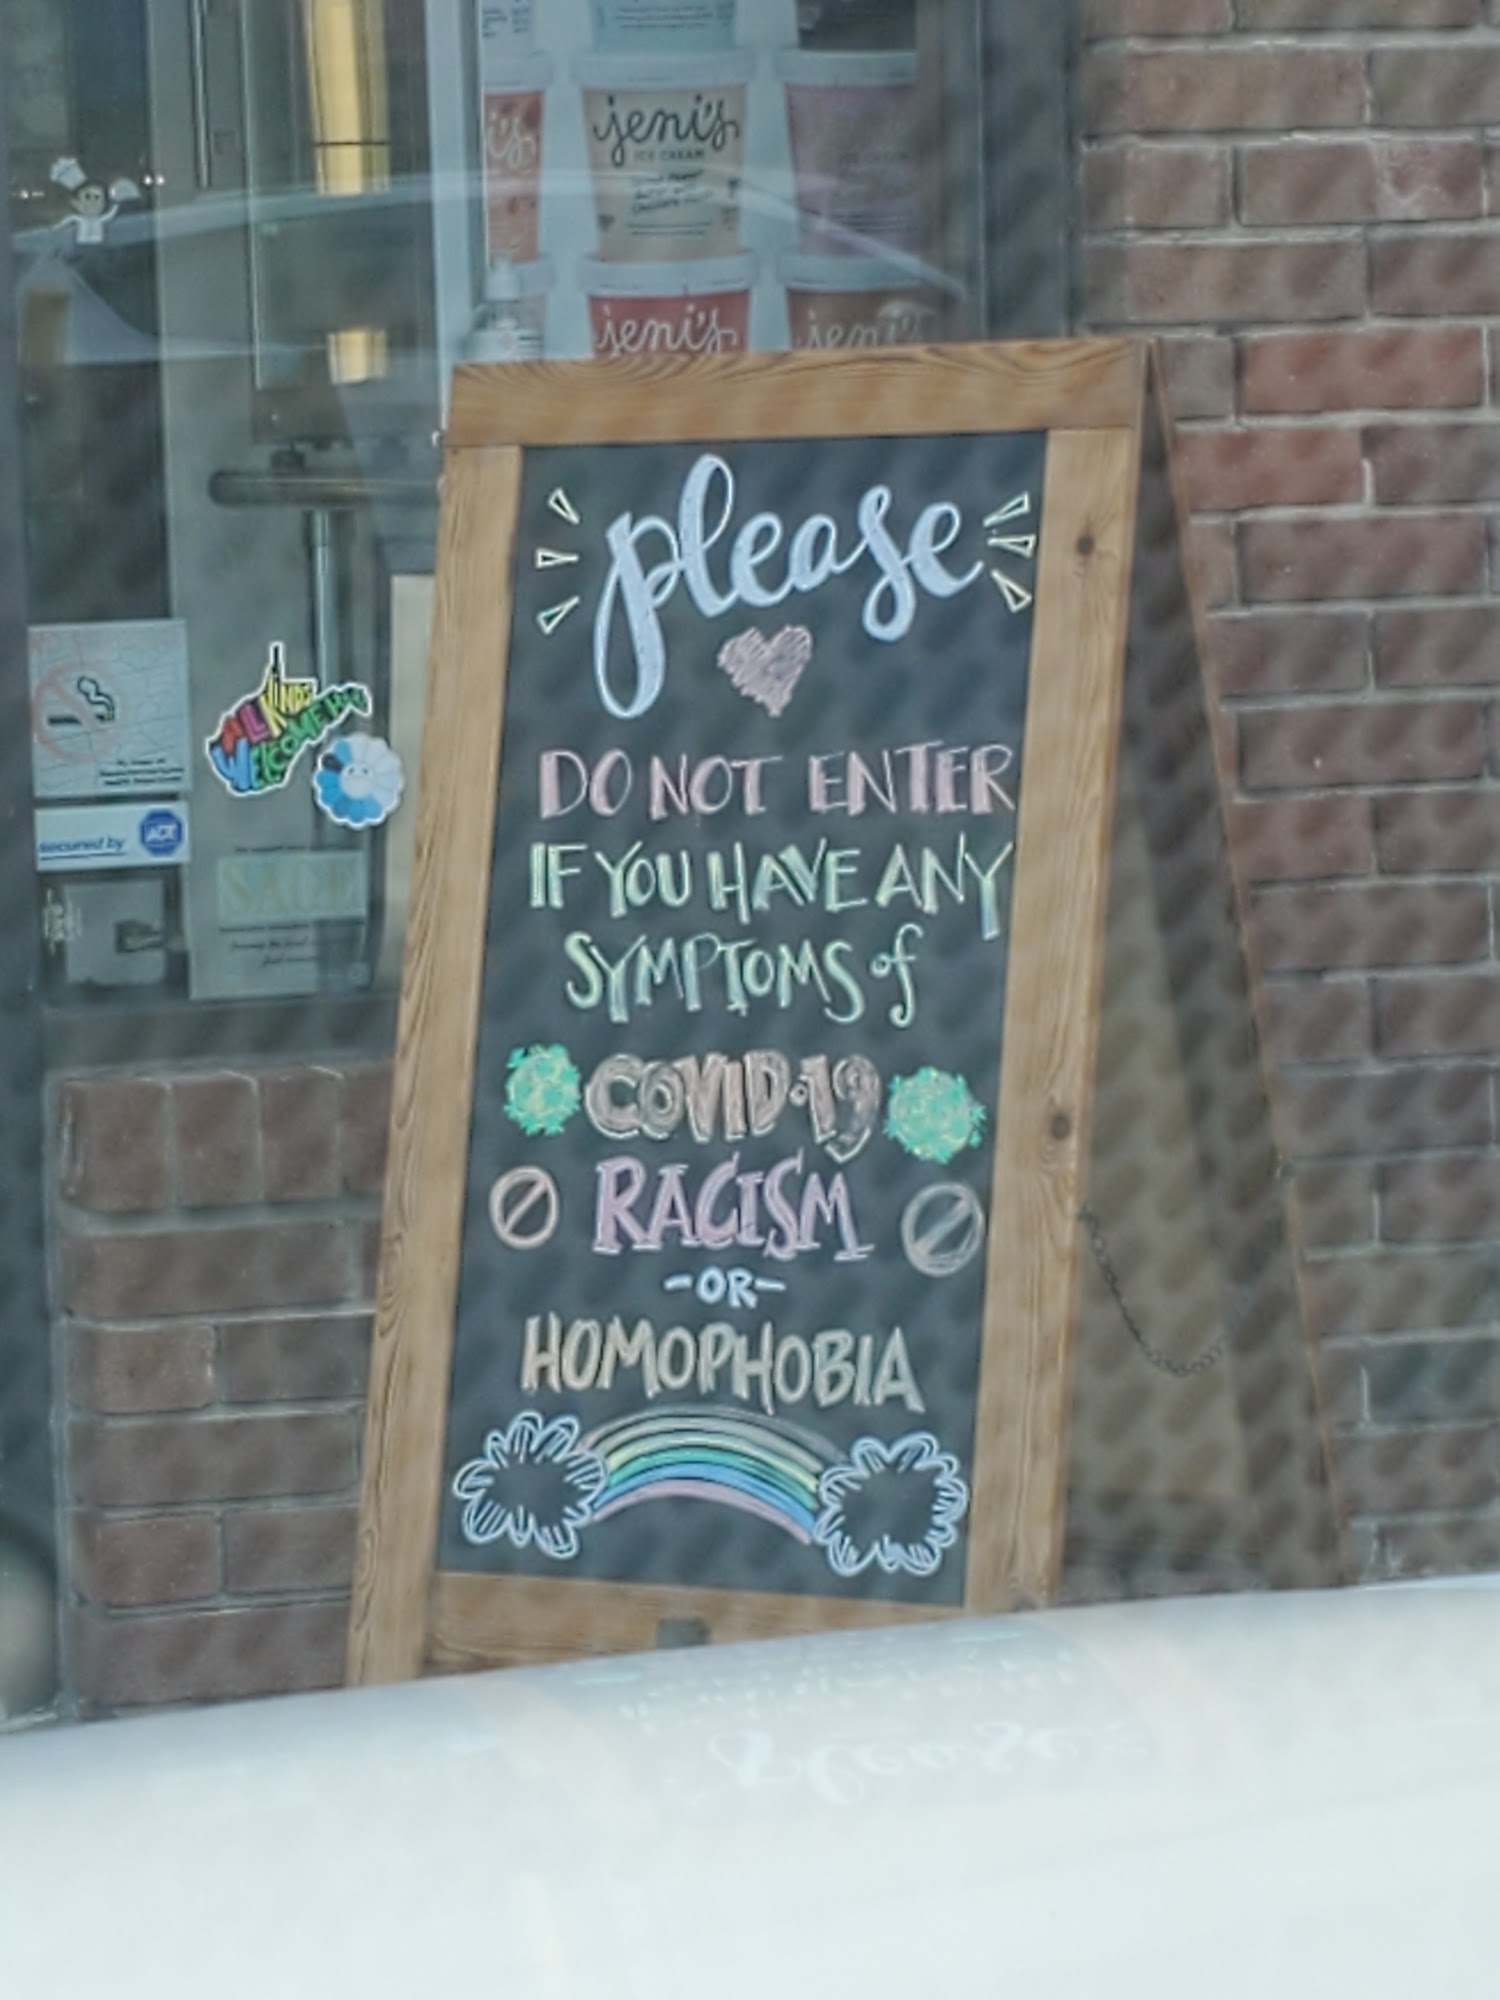 jeni's
ICE CREAM
jeni's
jeni's
please
DO NOT ENTER
IF YOU HAVE ANY
SYMPTOMS of
COVID-19
RACISM
-OR-
HOMOPHOBIA
ALL KINDS
WELCOME HERE
secured by
ADT
SAGE